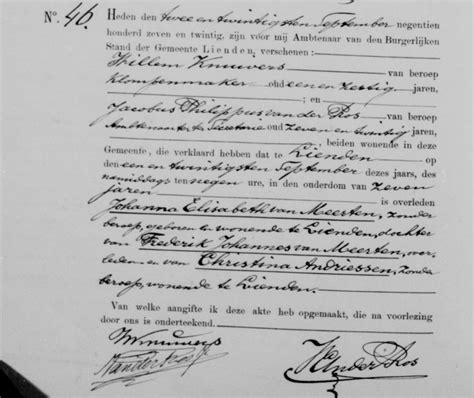 N°. 46.
Heden den twee en twintigsten September negentien
honderd zeven en twintig, zijn vóór mij Ambtenaar van den Burgerlijken
Stand der Gemeente Lienden, verschenen:
Willem Knuvers van beroep
klompenmaker oud een en zestig jaren,
; en
Jacobus Philippus van der Ros van beroep
Ambtenaar ter Secretarie oud zeven en twintig jaren,
beiden wonende in deze
Gemeente, die verklaard hebben dat te Lienden op
den een en twintigsten September dezes jaars, des
namiddags ten negen ure, in den ouderdom van zeven
jaren is overleden
Johanna Elisabeth van Meerten, zonder
beroep, geboren en wonende te Lienden, dochter
van Frederik Johannes van Meerten, over-
leden en van Christina Andriessen, zonder
beroep, wonende te Lienden.
Van welke aangifte ik deze akte heb opgemaakt, die na voorlezing
door ons is onderteekend.
W Knuvers
van der Ros